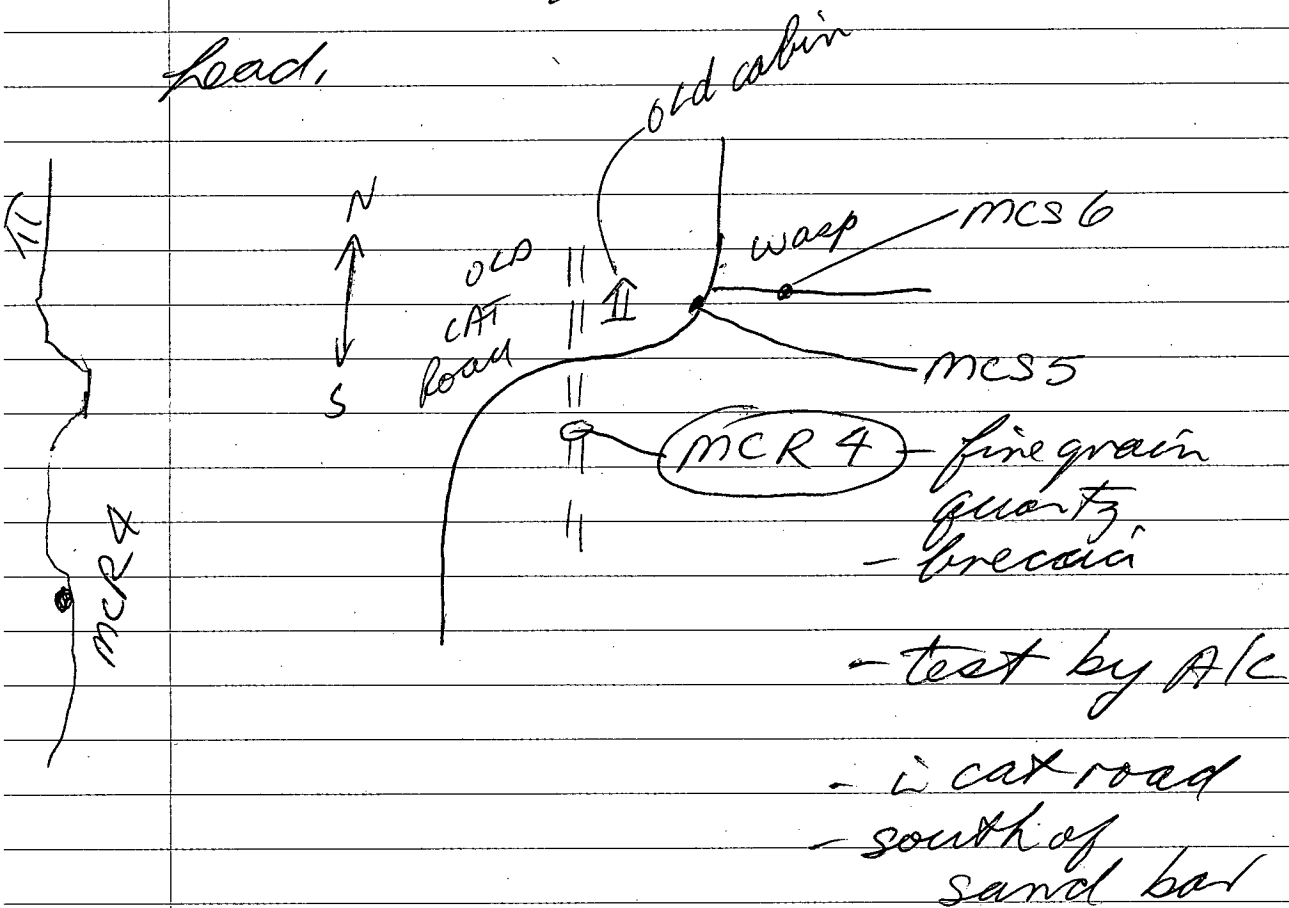 head,
old cabin
N
S
OLD
CAT
Road
wasp
MCS 6
MCS 5
MCR 4 - fine grain
quartz
- breccia
- test by A/C
- in cat road
- south of
sand bar
MCR 4